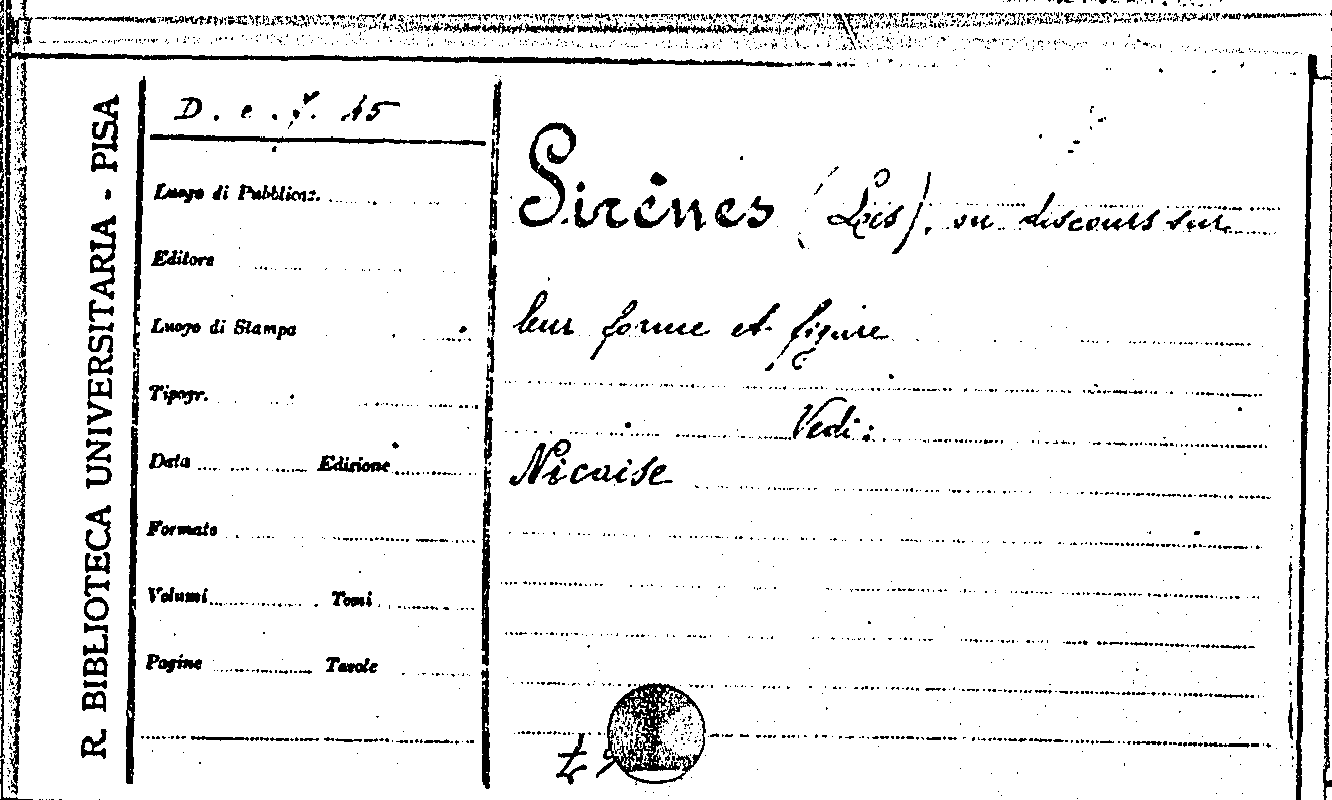 R. BIBLIOTECA UNIVERSITARIA - PISA
D. c. 7. 45
Luogo di Pubblicaz.
Editore
Luogo di Stampa
Tipogr.
Data Edizione
Formato
Volumi Tomi
Pagine Tavole
Sirènes (Les), ou discours sur
leur forme et figure
Vedi:
Nicaise